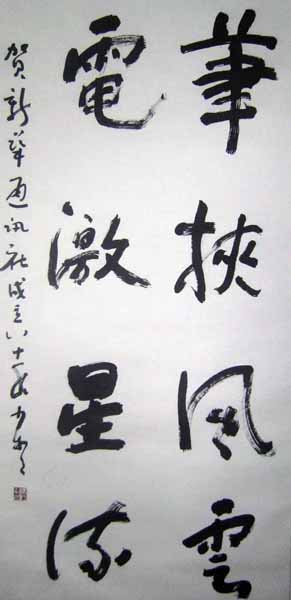 筆挾风雲
電激星流
賀新華通訊社成立八十年